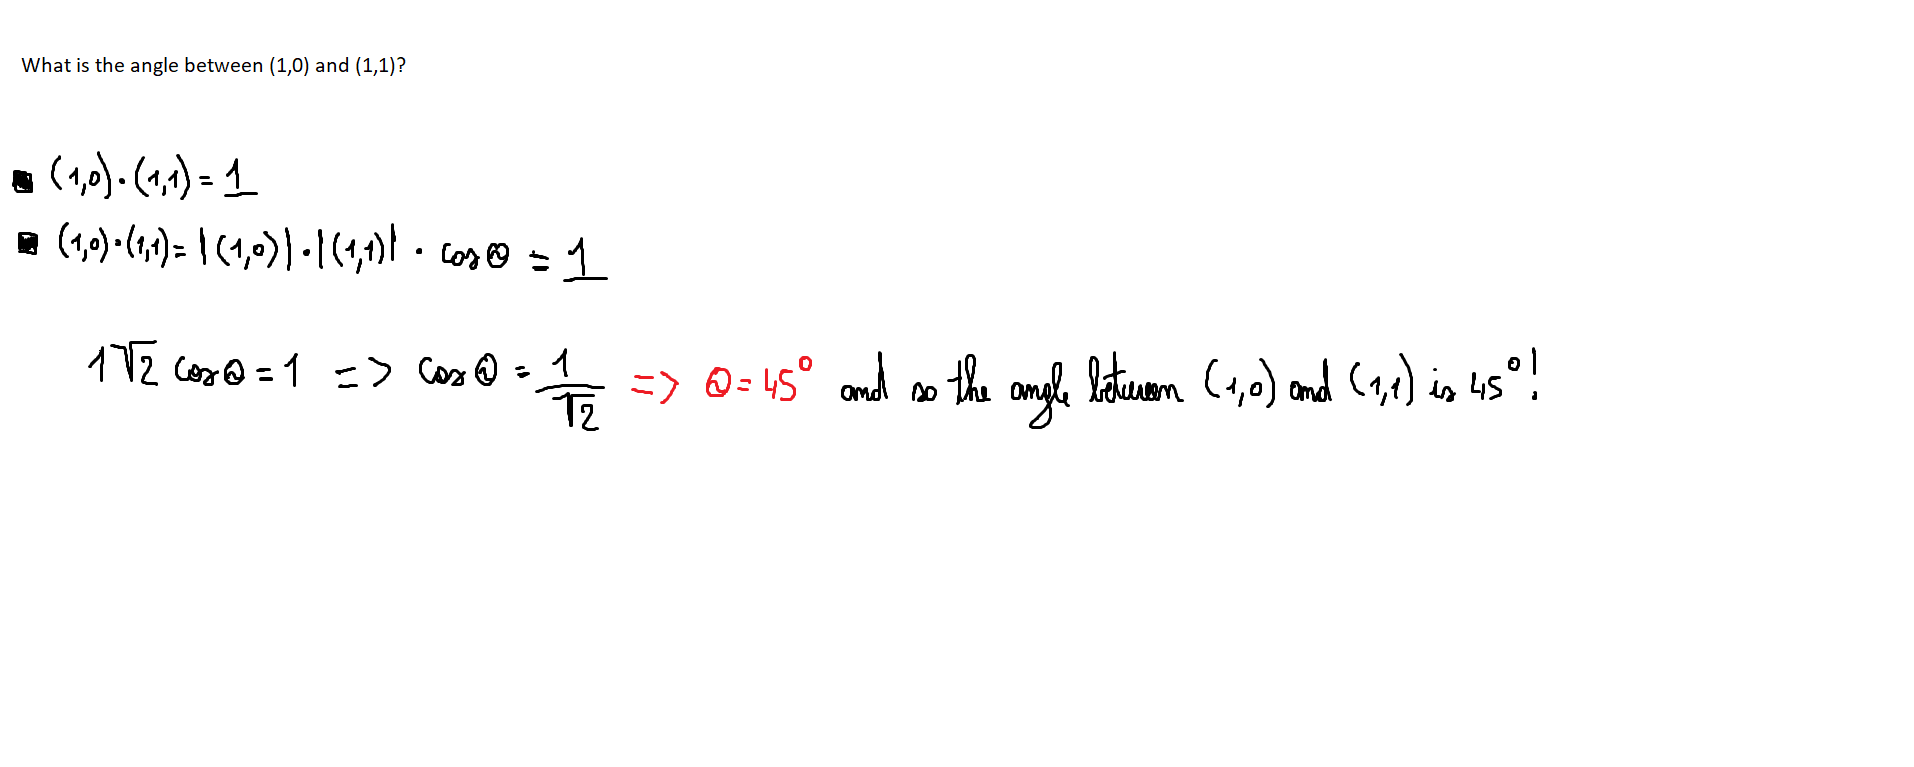 What is the angle between (1,0) and (1,1)?
(1,0)·(1,1) = 1
(1,0)·(1,1) = |(1,0)|·|(1,1)| · cos θ = 1
1√2 cos θ = 1 => cos θ = 1/√2 => θ = 45° and so the angle between (1,0) and (1,1) is 45°!